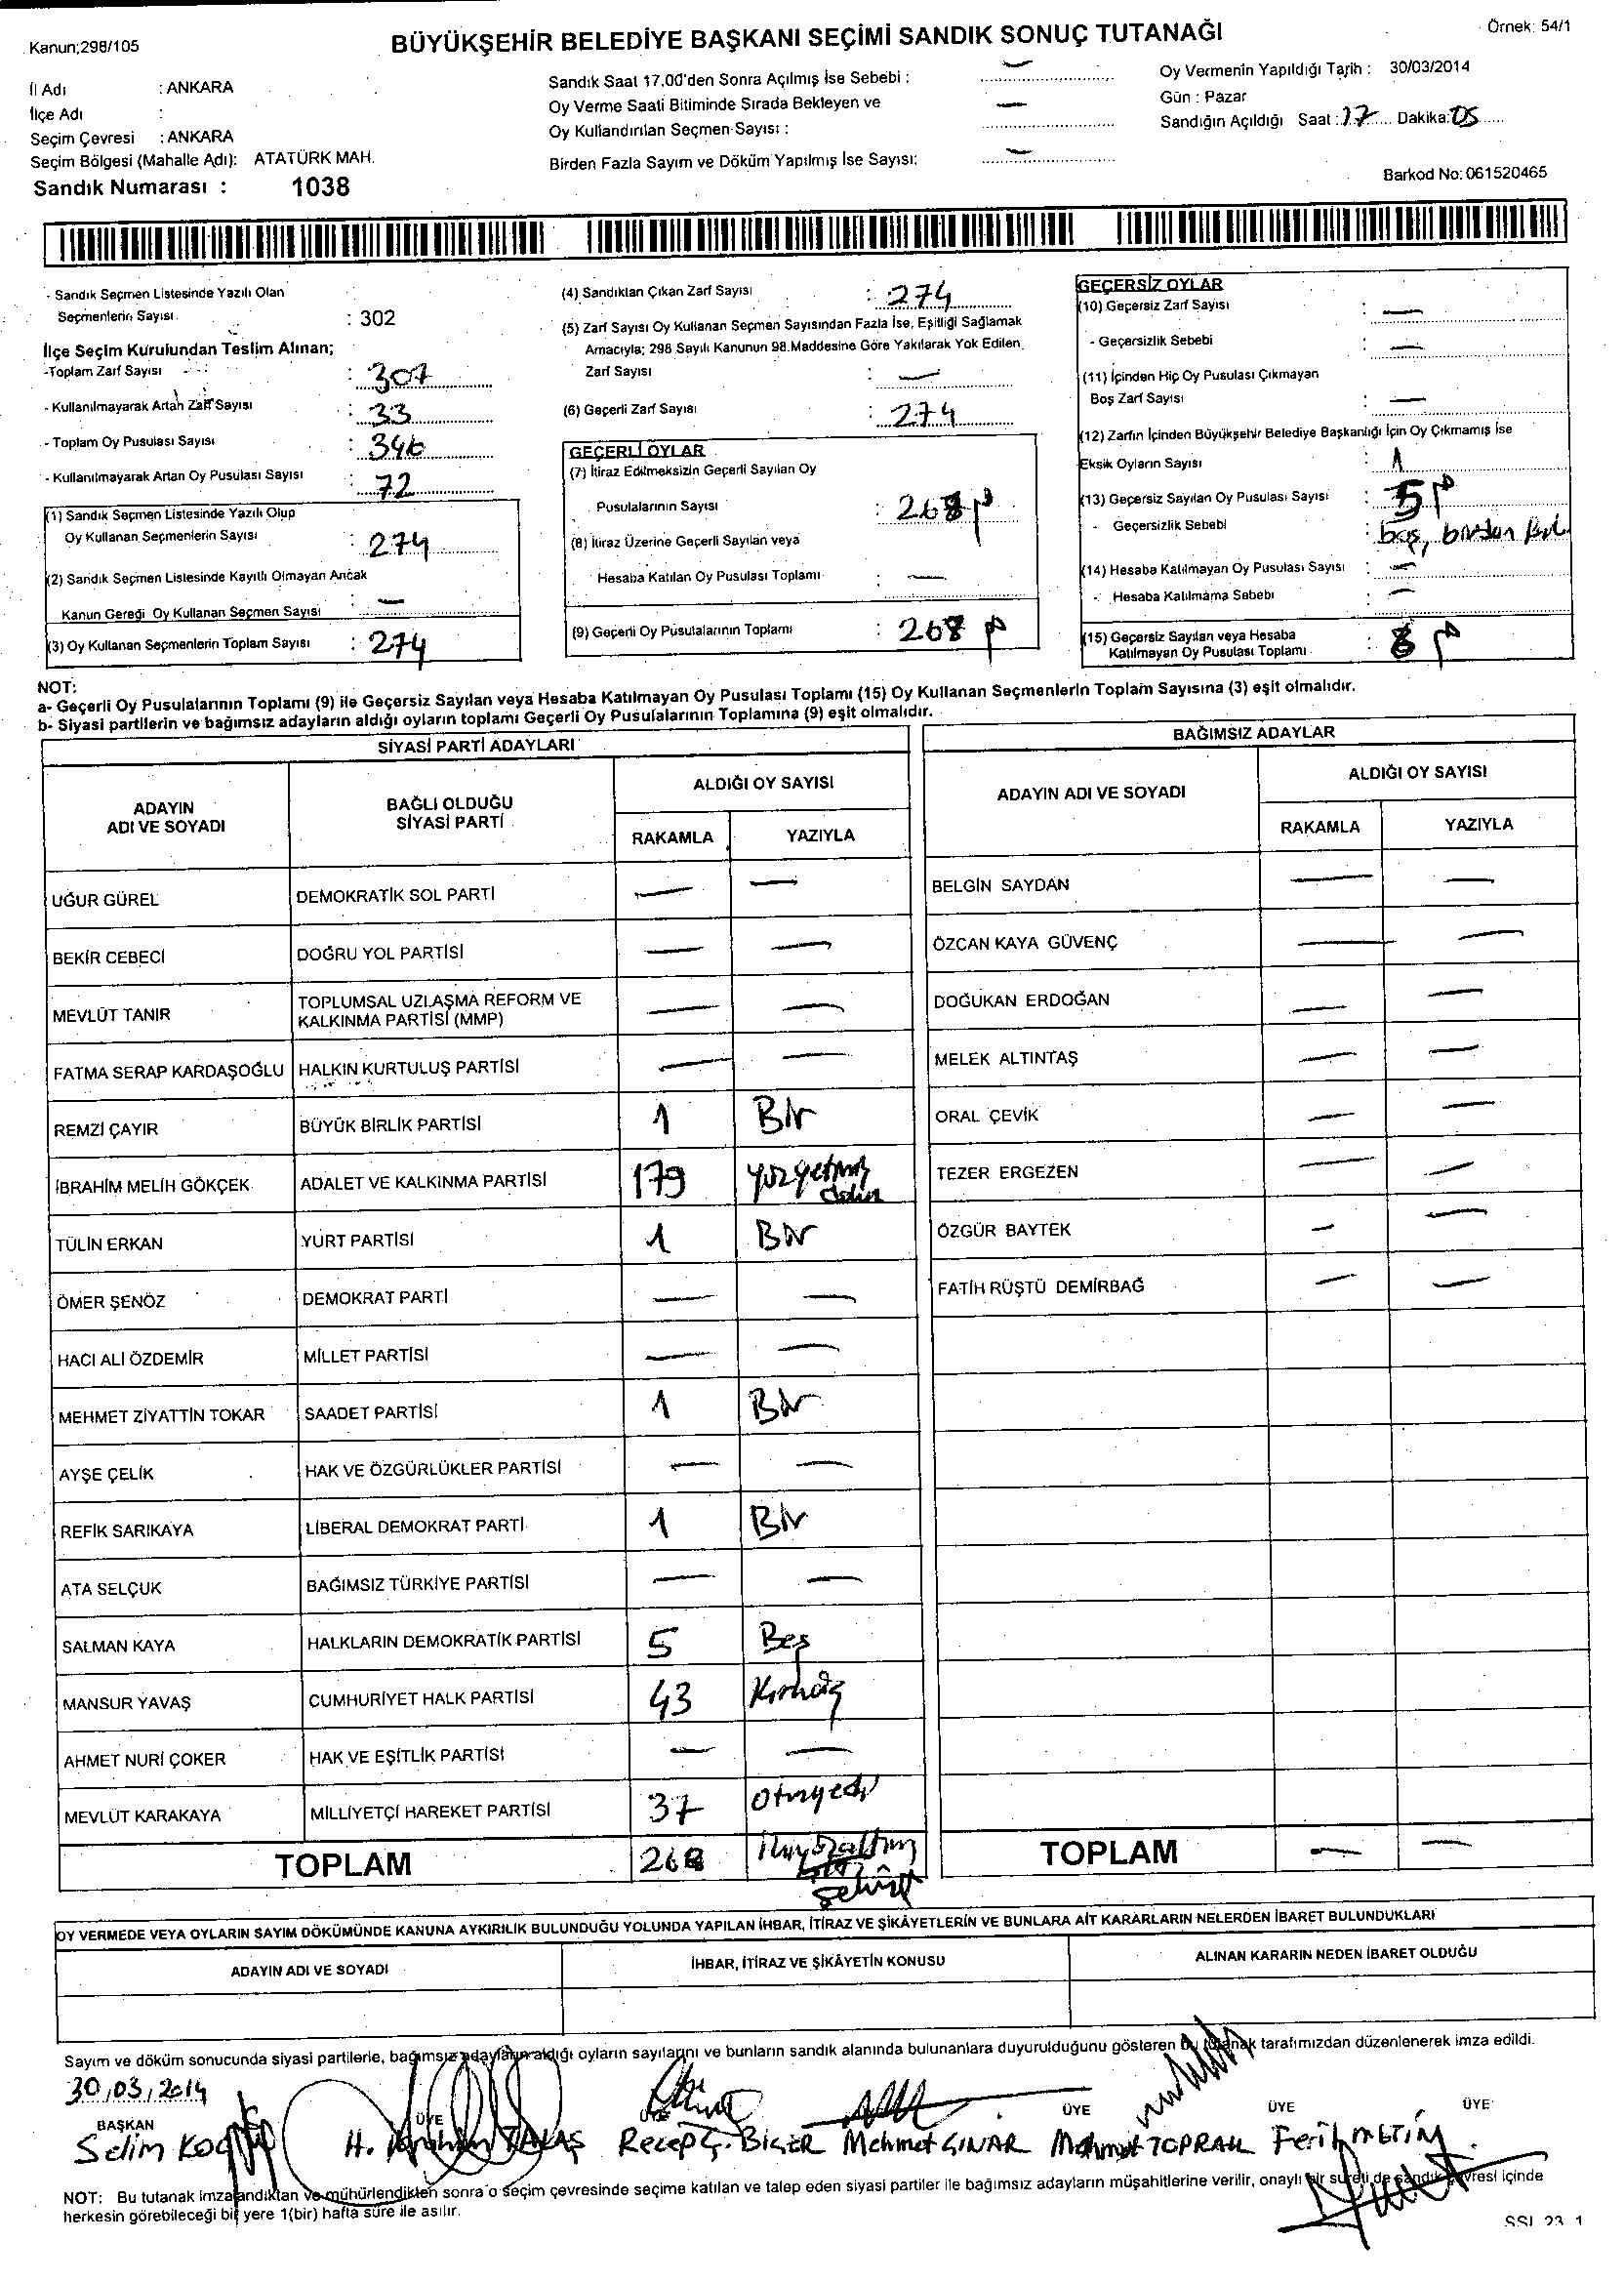 Kanun;298/105
BÜYÜKŞEHİR BELEDİYE BAŞKANI SEÇİMİ SANDIK SONUÇ TUTANAĞI
Örnek: 54/1
İl Adı : ANKARA
İlçe Adı :
Seçim Çevresi : ANKARA
Seçim Bölgesi (Mahalle Adı): ATATÜRK MAH.
Sandık Numarası : 1038
Sandık Saat 17.00'den Sonra Açılmış İse Sebebi : —
Oy Verme Saati Bitiminde Sırada Bekleyen ve
Oy Kullandırılan Seçmen Sayısı : —
Birden Fazla Sayım ve Döküm Yapılmış İse Sayısı: —
Oy Vermenin Yapıldığı Tarih : 30/03/2014
Gün : Pazar
Sandığın Açıldığı Saat : 17 Dakika: 05
Barkod No: 061520465
- Sandık Seçmen Listesinde Yazılı Olan
Seçmenlerin Sayısı : 302
İlçe Seçim Kurulundan Teslim Alınan;
-Toplam Zarf Sayısı : 307
- Kullanılmayarak Artan Zarf Sayısı : 33
- Toplam Oy Pusulası Sayısı : 346
- Kullanılmayarak Artan Oy Pusulası Sayısı : 72
(1) Sandık Seçmen Listesinde Yazılı Olup
Oy Kullanan Seçmenlerin Sayısı : 274
(2) Sandık Seçmen Listesinde Kayıtlı Olmayan Ancak
Kanun Gereği Oy Kullanan Seçmen Sayısı : —
(3) Oy Kullanan Seçmenlerin Toplam Sayısı : 274
(4) Sandıktan Çıkan Zarf Sayısı : 274
(5) Zarf Sayısı Oy Kullanan Seçmen Sayısından Fazla İse, Eşitliği Sağlamak
Amacıyla; 298 Sayılı Kanunun 98.Maddesine Göre Yakılarak Yok Edilen
Zarf Sayısı : —
(6) Geçerli Zarf Sayısı : 274
GEÇERLİ OYLAR
(7) İtiraz Edilmeksizin Geçerli Sayılan Oy
Pusulalarının Sayısı : 268
(8) İtiraz Üzerine Geçerli Sayılan veya
Hesaba Katılan Oy Pusulası Toplamı : —
(9) Geçerli Oy Pusulalarının Toplamı : 268
GEÇERSİZ OYLAR
(10) Geçersiz Zarf Sayısı : —
- Geçersizlik Sebebi : —
(11) İçinden Hiç Oy Pusulası Çıkmayan
Boş Zarf Sayısı : —
(12) Zarfın İçinden Büyükşehir Belediye Başkanlığı İçin Oy Çıkmamış İse
Eksik Oyların Sayısı : 1
(13) Geçersiz Sayılan Oy Pusulası Sayısı : 5
- Geçersizlik Sebebi : boş, birden
(14) Hesaba Katılmayan Oy Pusulası Sayısı : —
- Hesaba Katılmama Sebebi : —
(15) Geçersiz Sayılan veya Hesaba
Katılmayan Oy Pusulası Toplamı :
NOT:
a- Geçerli Oy Pusulalarının Toplamı (9) ile Geçersiz Sayılan veya Hesaba Katılmayan Oy Pusulası Toplamı (15) Oy Kullanan Seçmenlerin Toplam Sayısına (3) eşit olmalıdır.
b- Siyasi partilerin ve bağımsız adayların aldığı oyların toplamı Geçerli Oy Pusulalarının Toplamına (9) eşit olmalıdır.
SİYASİ PARTİ ADAYLARI
ADAYIN ADI VE SOYADI
BAĞLI OLDUĞU SİYASİ PARTİ
ALDIĞI OY SAYISI
RAKAMLA YAZIYLA
UĞUR GÜREL DEMOKRATİK SOL PARTİ — —
BEKİR CEBECİ DOĞRU YOL PARTİSİ — —
MEVLÜT TANIR TOPLUMSAL UZLAŞMA REFORM VE KALKINMA PARTİSİ (MMP) — —
FATMA SERAP KARDAŞOĞLU HALKIN KURTULUŞ PARTİSİ — —
REMZİ ÇAYIR BÜYÜK BİRLİK PARTİSİ 1 Bir
İBRAHİM MELİH GÖKÇEK ADALET VE KALKINMA PARTİSİ 179 yüzyetmiş dokuz
TÜLİN ERKAN YURT PARTİSİ 1 Bir
ÖMER ŞENÖZ DEMOKRAT PARTİ — —
HACI ALİ ÖZDEMİR MİLLET PARTİSİ — —
MEHMET ZİYATTİN TOKAR SAADET PARTİSİ 1 Bir
AYŞE ÇELİK HAK VE ÖZGÜRLÜKLER PARTİSİ — —
REFİK SARIKAYA LİBERAL DEMOKRAT PARTİ 1 Bir
ATA SELÇUK BAĞIMSIZ TÜRKİYE PARTİSİ — —
SALMAN KAYA HALKLARIN DEMOKRATİK PARTİSİ 5 Beş
MANSUR YAVAŞ CUMHURİYET HALK PARTİSİ 43 Kırküç
AHMET NURİ ÇOKER HAK VE EŞİTLİK PARTİSİ — —
MEVLÜT KARAKAYA MİLLİYETÇİ HAREKET PARTİSİ 37 Otuzyedi
TOPLAM 268 ikiyüzaltmış sekiz
BAĞIMSIZ ADAYLAR
ADAYIN ADI VE SOYADI
ALDIĞI OY SAYISI
RAKAMLA YAZIYLA
BELGİN SAYDAN — —
ÖZCAN KAYA GÜVENÇ — —
DOĞUKAN ERDOĞAN — —
MELEK ALTINTAŞ — —
ORAL ÇEVİK — —
TEZER ERGEZEN — —
ÖZGÜR BAYTEK — —
FATİH RÜŞTÜ DEMİRBAĞ — —
TOPLAM — —
OY VERMEDE VEYA OYLARIN SAYIM DÖKÜMÜNDE KANUNA AYKIRILIK BULUNDUĞU YOLUNDA YAPILAN İHBAR, İTİRAZ VE ŞİKÂYETLERİN VE BUNLARA AİT KARARLARIN NELERDEN İBARET BULUNDUKLARI
ADAYIN ADI VE SOYADI
İHBAR, İTİRAZ VE ŞİKÂYETİN KONUSU
ALINAN KARARIN NEDEN İBARET OLDUĞU
Sayım ve döküm sonucunda siyasi partilerle, bağımsız adayların aldığı oyların sayılarını ve bunların sandık alanında bulunanlara duyurulduğunu gösteren bu tutanak tarafımızdan düzenlenerek imza edildi.
30/03/2014
BAŞKAN ÜYE ÜYE ÜYE ÜYE ÜYE
Selim H. İbrahim Recep Ç. BİÇER Mehmet ÇINAR Mahmut TOPRAK Ferit METİN
NOT: Bu tutanak imzalandıktan ve mühürlendikten sonra o seçim çevresinde seçime katılan ve talep eden siyasi partiler ile bağımsız adayların müşahitlerine verilir, onaylı bir sureti de sandık çevresi içinde
herkesin görebileceği bir yere 1(bir) hafta süre ile asılır.